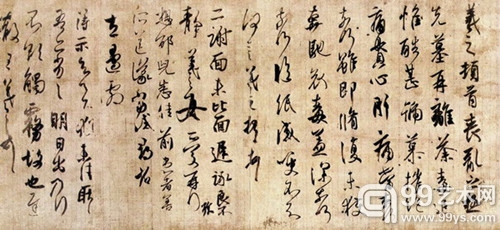 羲之頓首喪亂之極
先墓再離荼毒追
惟酷甚號慕摧絶
痛貫心肝痛當奈何
奈何雖即脩復未獲
奔馳哀毒益深奈何
奈何臨紙感哽不知
何言羲之頓首頓首
二謝面未比面遲詠良
靜羲之女愛再拜
想邵兒悉佳前患者善
所送議當試尋省
左邊劇
得示知足下猶未佳耿耿
吾亦劣劣明日出乃行
不欲觸霧故也遲
散王羲之頓首
99艺术网
99ys.com